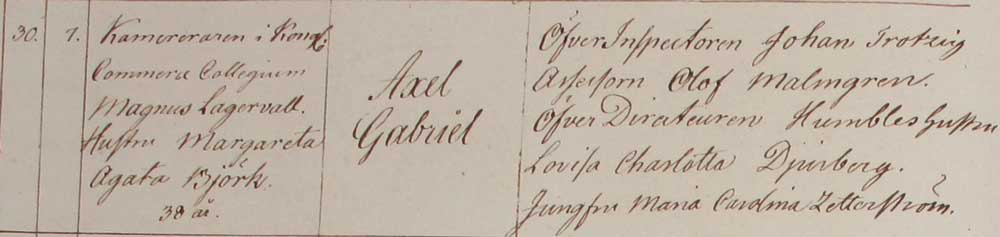 30. 7. Kamereraren i Kongl.
Commerce Collegium
Magnus Lagervall.
Hustru Margareta
Agata Björk.
38 år.
Axel
Gabriel
Öfver Inspectoren Johan Trotzig
Assessorn Olof Malmgren.
Öfver Directeuren Humbles hustru
Lovisa Charlotta Djurberg.
Jungfru Maria Carolina Zetterström.